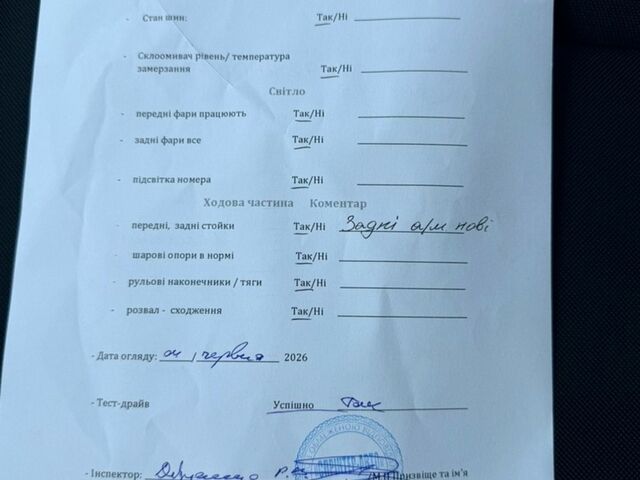 - Стан шин: Так/Ні
- Склоомивач рівень/ температура
замерзання Так/Ні
Світло
- передні фари працюють Так/Ні
- задні фари все Так/Ні
- підсвітка номера Так/Ні
Ходова частина Коментар
- передні, задні стойки Так/Ні Задні а/м нові
- шарові опори в нормі Так/Ні
- рульові наконечники / тяги Так/Ні
- розвал - сходження Так/Ні
- Дата огляду: 04 / червня 2026
- Тест-драйв Успішно Так
- Інспектор: Р. /М П Прізвище та ім'я